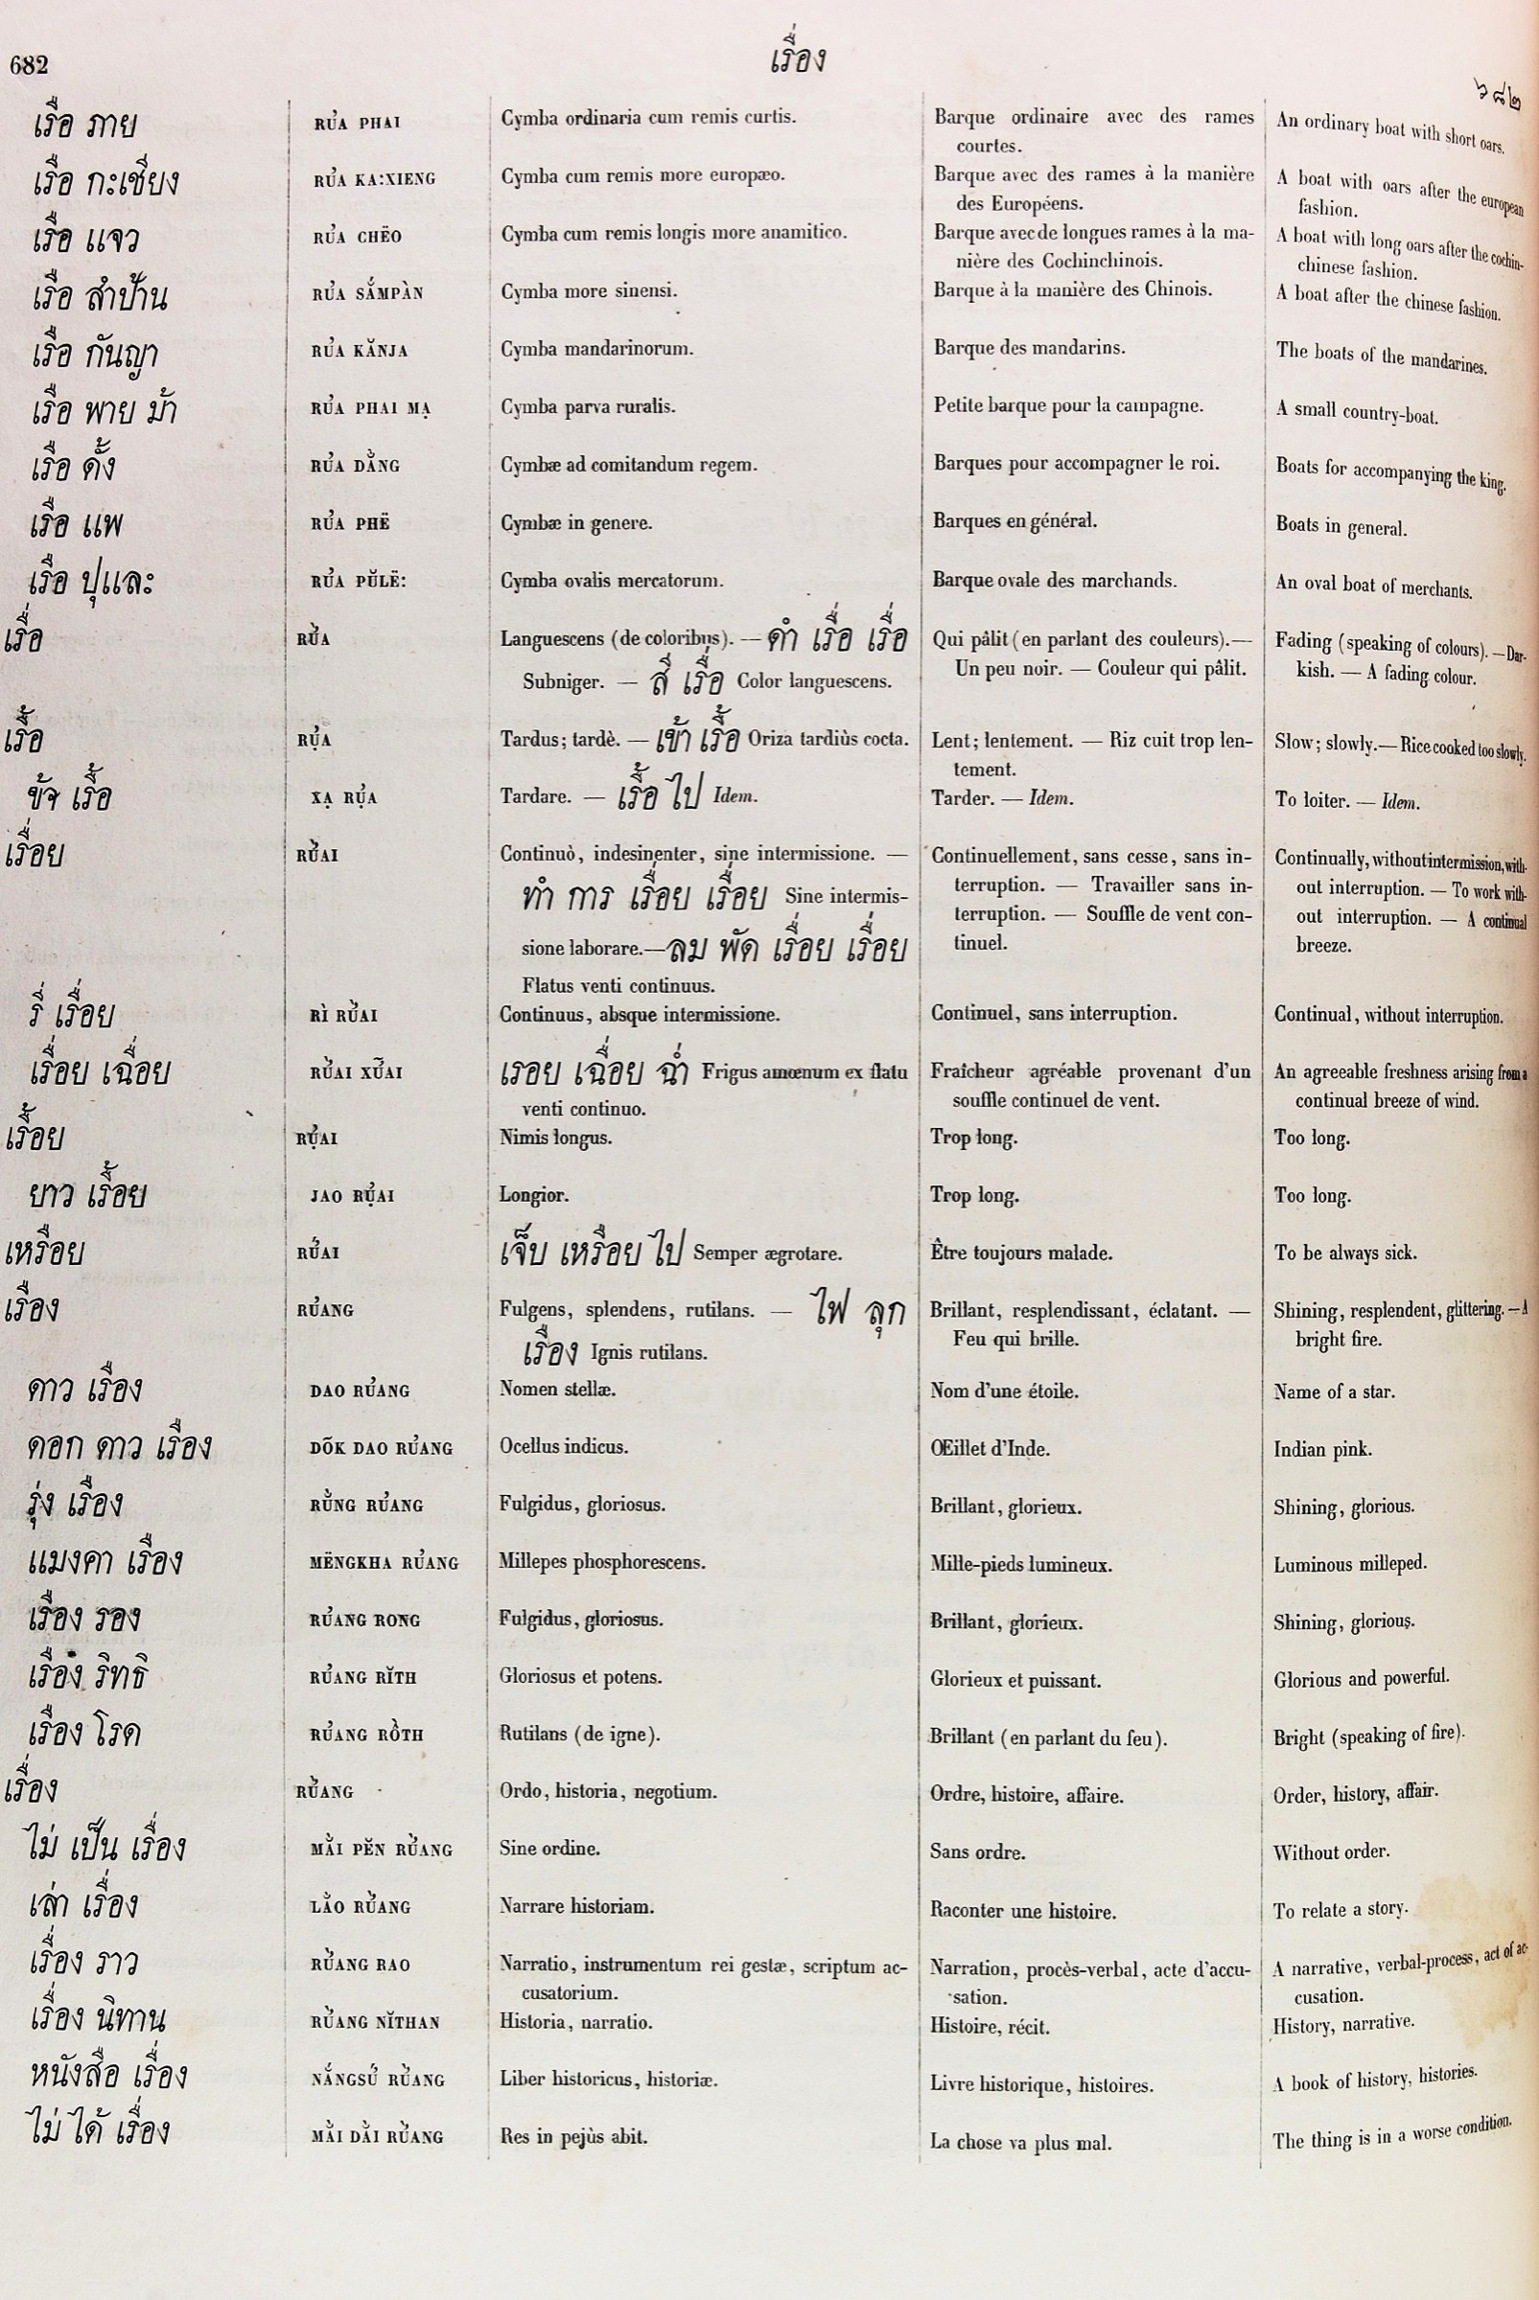 682
เรื่อง
๖๘๒
เรือ ภาย RỦA PHAI Cymba ordinaria cum remis curtis. Barque ordinaire avec des rames An ordinary boat with short oars.
courtes.
เรือ กะเชียง RỦA KA:XIENG Cymba cum remis more europæo. Barque avec des rames à la manière A boat with oars after the european
des Européens. fashion.
เรือ แจว RỦA CHËO Cymba cum remis longis more anamitico. Barque avec de longues rames à la ma- A boat with long oars after the cochin-
nière des Cochinchinois. chinese fashion.
เรือ สำป้าน RỦA SẮMPÀN Cymba more sinensi. Barque à la manière des Chinois. A boat after the chinese fashion.
เรือ กันญา RỦA KĂNJA Cymba mandarinorum. Barque des mandarins. The boats of the mandarines.
เรือ พาย ม้า RỦA PHAI MẠ Cymba parva ruralis. Petite barque pour la campagne. A small country-boat.
เรือ ดั้ง RỦA DẰNG Cymbæ ad comitandum regem. Barques pour accompagner le roi. Boats for accompanying the king.
เรือ แพ RỦA PHË Cymbæ in genere. Barques en général. Boats in general.
เรือ ปุและ RỦA PŬLË: Cymba ovalis mercatorum. Barque ovale des marchands. An oval boat of merchants.
เรื่อ RỦ̀A Languescens (de coloribus). — ดำ เรื่อ เรื่อ Qui pâlit (en parlant des couleurs).— Fading (speaking of colours). — Dar-
Subniger. — สี เรื่อ Color languescens. Un peu noir. — Couleur qui pâlit. kish. — A fading colour.
เรื้อ RỤ̉A Tardus; tardè. — เข้า เรื้อ Oriza tardiùs cocta. Lent; lentement. — Riz cuit trop len- Slow; slowly.— Rice cooked too slowly.
tement.
ชัจ เรื้อ XẠ RỤ̉A Tardare. — เรื้อ ไป Idem. Tarder. — Idem. To loiter. — Idem.
เรื่อย RỦ̀AI Continuò, indesinenter, sine intermissione. — Continuellement, sans cesse, sans in- Continually, without intermission, with-
ทำ การ เรื่อย เรื่อย Sine intermis- terruption. — Travailler sans in- out interruption. — To work with-
sione laborare.— ลม พัด เรื่อย เรื่อย terruption. — Souffle de vent con- out interruption. — A continual
Flatus venti continuus. tinuel. breeze.
รี่ เรื่อย RÌ RỦ̀AI Continuus, absque intermissione. Continuel, sans interruption. Continual, without interruption.
เรื่อย เฉื่อย RỦ̀AI XỦ̀AI เรอย เฉื่อย ฉ่ำ Frigus amœnum ex flatu Fraîcheur agréable provenant d'un An agreeable freshness arising from a
venti continuo. souffle continuel de vent. continual breeze of wind.
เรื้อย RỤ̉AI Nimis longus. Trop long. Too long.
ยาว เรื้อย JAO RỤ̉AI Longior. Trop long. Too long.
เหรือย RỦ́AI เจ็บ เหรือย ไป Semper ægrotare. Être toujours malade. To be always sick.
เรือง RỦANG Fulgens, splendens, rutilans. — ไฟ ลุก Brillant, resplendissant, éclatant. — Shining, resplendent, glittering. — A
เรือง Ignis rutilans. Feu qui brille. bright fire.
ดาว เรือง DAO RỦANG Nomen stellæ. Nom d'une étoile. Name of a star.
ดอก ดาว เรือง DÕK DAO RỦANG Ocellus indicus. Œillet d'Inde. Indian pink.
รุ่ง เรือง RŬ̀NG RỦANG Fulgidus, gloriosus. Brillant, glorieux. Shining, glorious.
แมงคา เรือง MËNGKHA RỦANG Millepes phosphorescens. Mille-pieds lumineux. Luminous milleped.
เรือง รอง RỦANG RONG Fulgidus, gloriosus. Brillant, glorieux. Shining, glorious.
เรือง ริทธิ RỦANG RĬTH Gloriosus et potens. Glorieux et puissant. Glorious and powerful.
เรือง โรด RỦANG RỒTH Rutilans (de igne). Brillant (en parlant du feu). Bright (speaking of fire).
เรื่อง RỦ̀ANG Ordo, historia, negotium. Ordre, histoire, affaire. Order, history, affair.
ไม่ เป็น เรื่อง MẰI PĔN RỦ̀ANG Sine ordine. Sans ordre. Without order.
เล่า เรื่อง LẰO RỦ̀ANG Narrare historiam. Raconter une histoire. To relate a story.
เรื่อง ราว RỦ̀ANG RAO Narratio, instrumentum rei gestæ, scriptum ac- Narration, procès-verbal, acte d'accu- A narrative, verbal-process, act of ac-
cusatorium. sation. cusation.
เรื่อง นิทาน RỦ̀ANG NĬTHAN Historia, narratio. Histoire, récit. History, narrative.
หนังสือ เรื่อง NẮNGSỦ́ RỦ̀ANG Liber historicus, historiæ. Livre historique, histoires. A book of history, histories.
ไม่ ได้ เรื่อง MẰI DẰI RỦ̀ANG Res in pejùs abit. La chose va plus mal. The thing is in a worse condition.